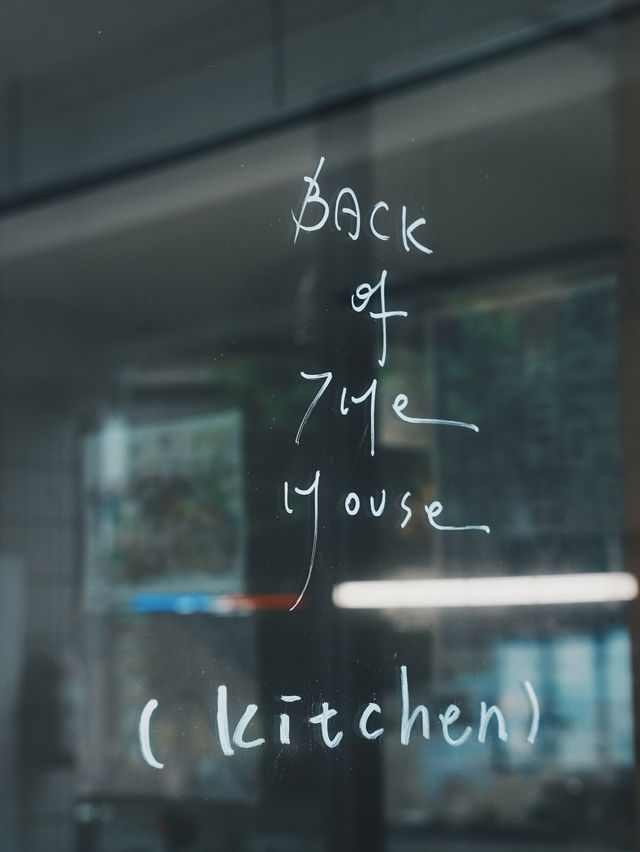 BACK
of
THe
House
(kitchen)